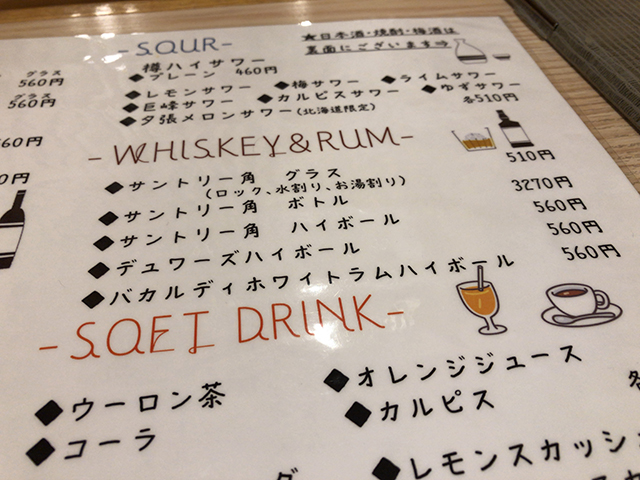 -SOUR-
★日本酒・焼酎・梅酒は
裏面にございます⇨
樽ハイサワー
◆プレーン 460円
◆レモンサワー ◆梅サワー ◆ライムサワー
◆巨峰サワー ◆カルピスサワー ◆ゆずサワー
◆夕張メロンサワー(北海道限定) 各510円
グラス
560円
グラス
560円
円
0円
-WHISKEY&RUM-
◆サントリー角 グラス 510円
(ロック、水割り、お湯割り)
◆サントリー角 ボトル 3270円
◆サントリー角 ハイボール 560円
◆デュワーズハイボール 560円
◆バカルディホワイトラムハイボール 560円
-SOFT DRINK-
◆ウーロン茶 ◆オレンジジュース
◆コーラ ◆カルピス
◆レモンスカッシュ
各